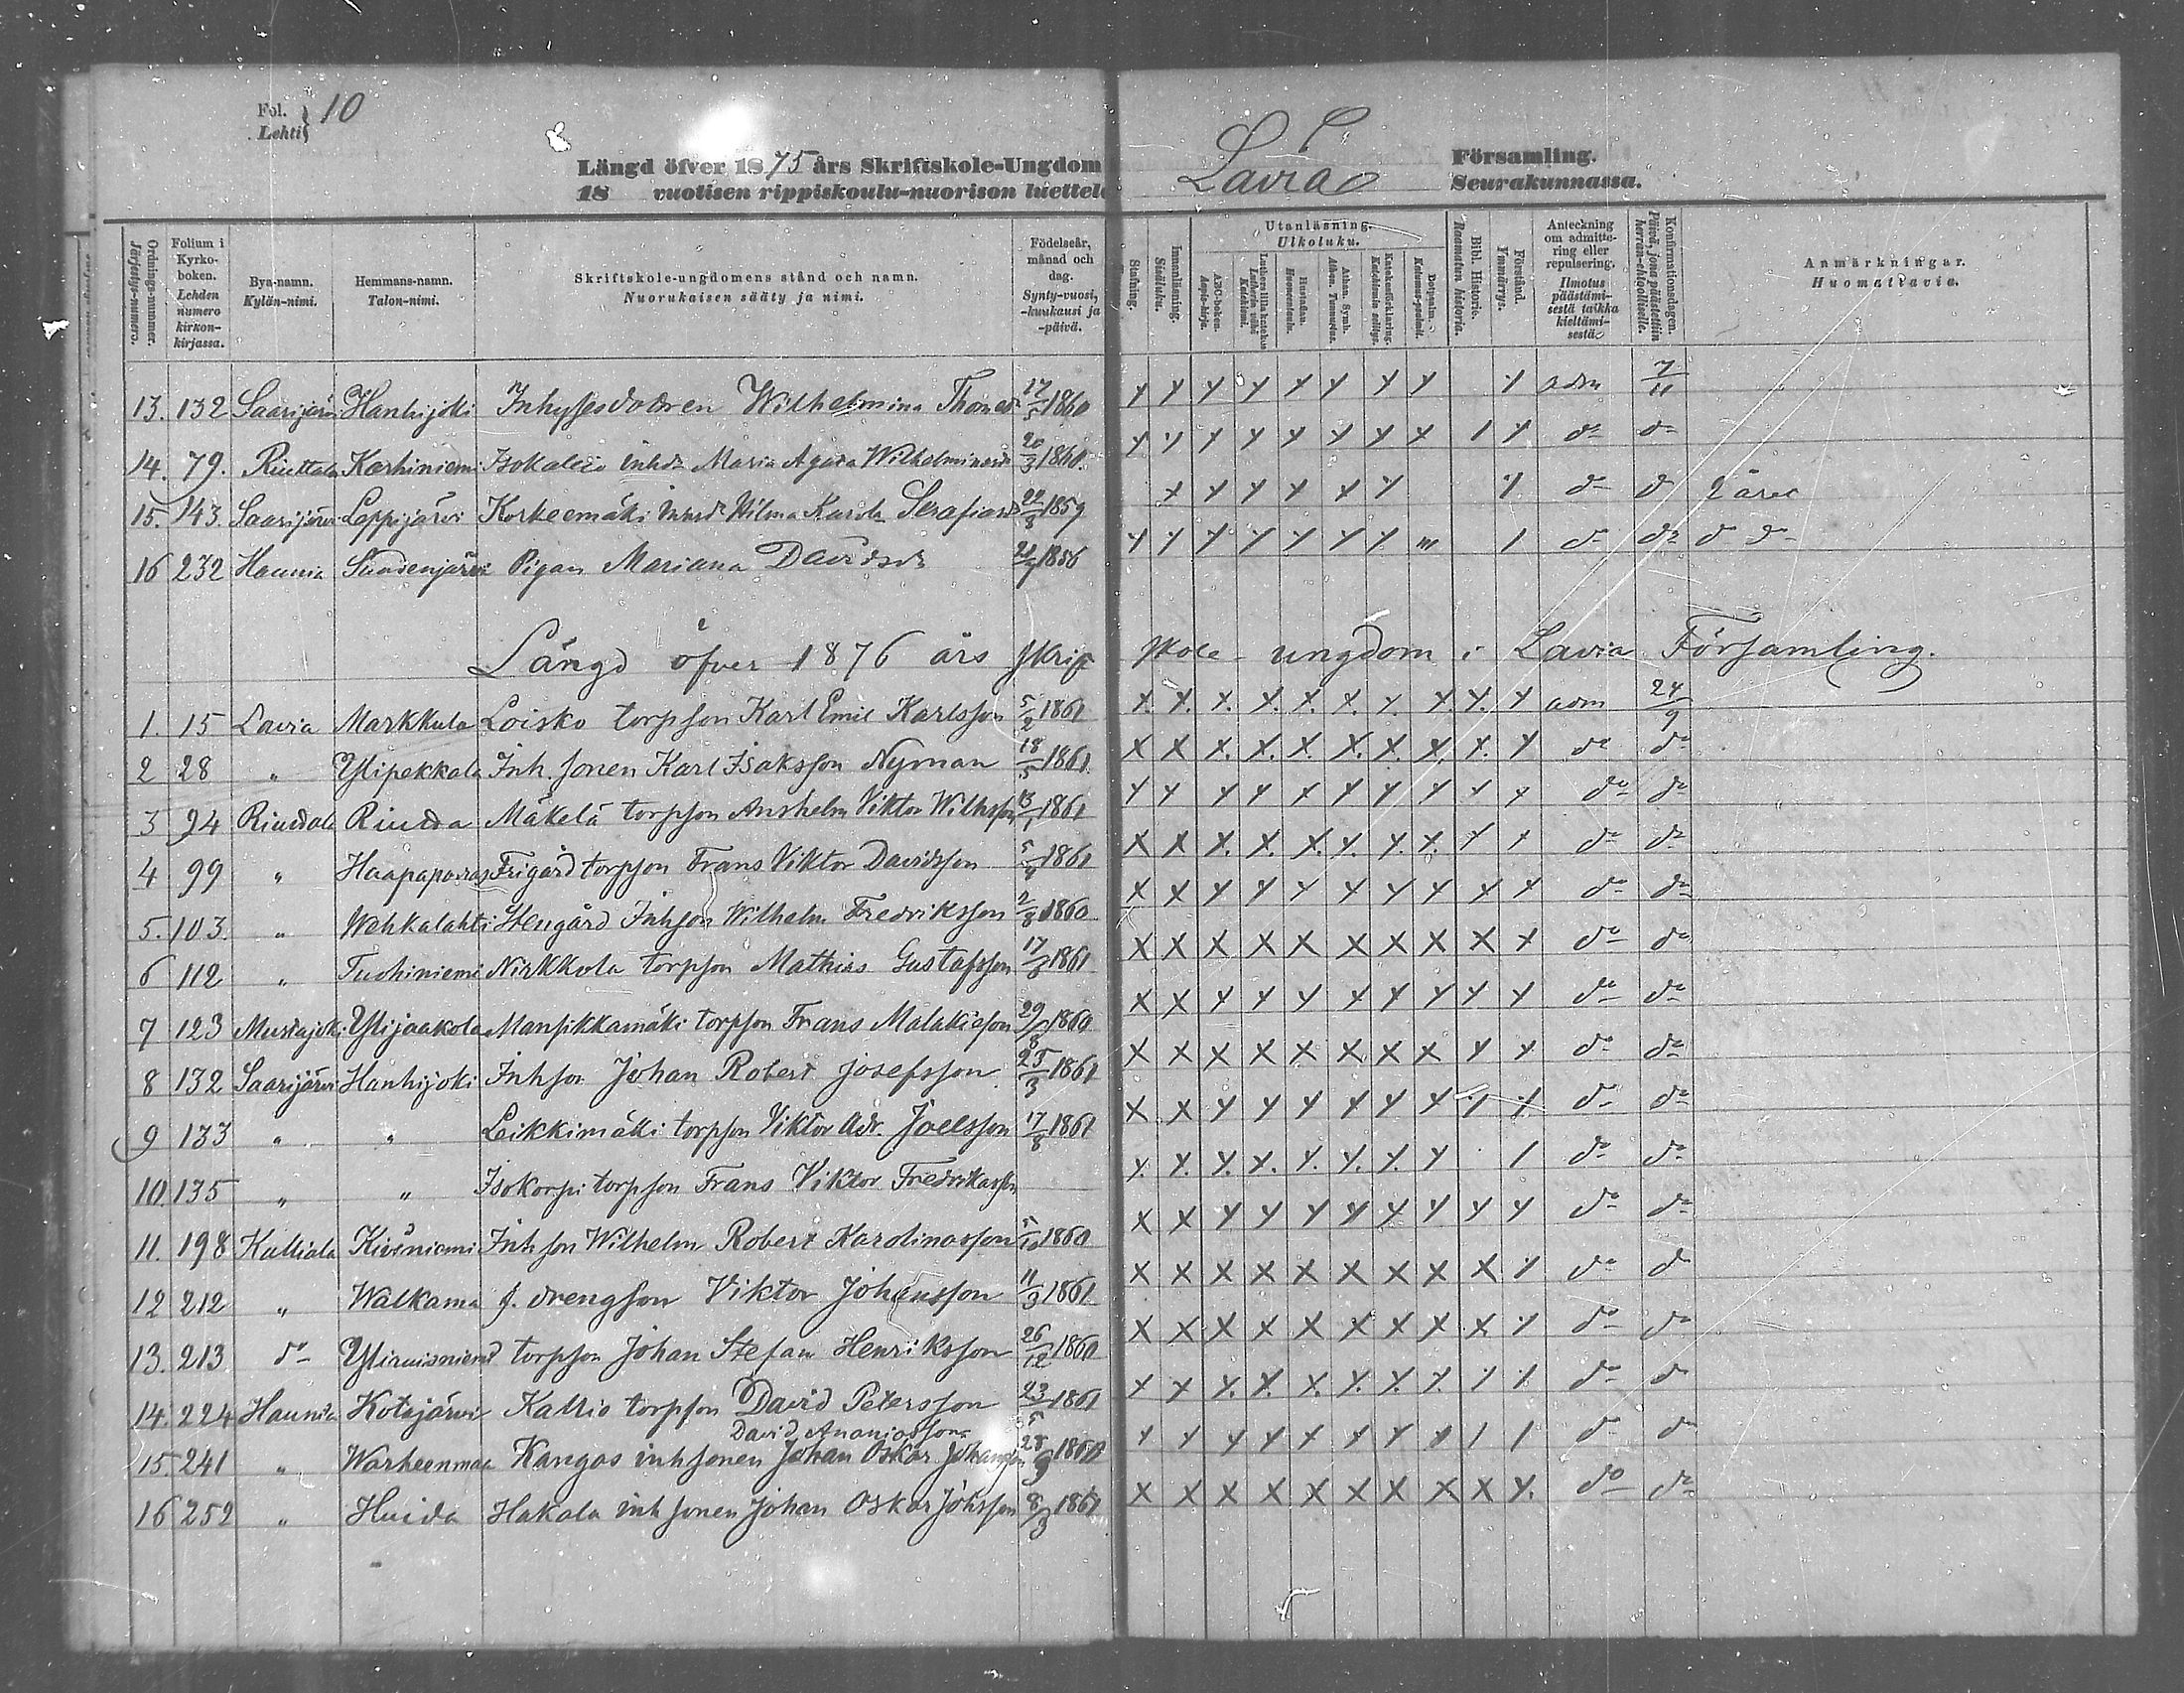 Fol. Lehti } 10
Längd öfver 1875 års Skriftskole-Ungdom
18 vuotisen rippiskoulu-nuorison luettelo
Lavia
Församling.
Seurakunnassa.
Ordnings-nummer. Järjestys-numero.
Folium i Kyrko-boken. Lehden numero kirkon-kirjassa.
Bya-namn. Kylän-nimi.
Hemmans-namn. Talon-nimi.
Skriftskole-ungdomens stånd och namn. Nuorukaisen sääty ja nimi.
Födelseår, månad och dag. Synty-vuosi, -kuukausi ja -päivä.
Stafning.
Innanläsning. Sisäluku.
Utanläsning. Ulkoluku.
ABC-boken. Aapis-kirja.
Lutheri lilla katekes Lutherin vähä Katekismi.
Hustaflan. Huoneentaulu.
Athan. Symb. Athan. Tunnustus.
Katekesförklaring. Katekismin selitys.
Botpsalm. Katumus-psalmit.
Bibl. Historie. Raamatun historia.
Förstånd. Ymmärrys.
Anteckning om admitte-ring eller repulsering. Ilmotus päästämi-sestä taikka kieltämi-sestä
Konfirmationsdagen. Päivä, jona päästettiin herran-ehtoolliselle.
Anmärkningar. Huomattavia.
13. 132 Saarijärvi Hanhijoki Inhysesdottren Wilhelmina Thomasdr 17/5 1860 y y y y y y y y y adm 7/11
14. 79. Riuttala Karhiniemi Isokallio inhdr Maria Agata Wilhelminasdr 20/3 1860. y y y y y y y x / y do do
15. 143. Saarijärvi Lappijärvi Korkeemäki inhdr Hilma Karola Serafiasdr 22/8 1859 x y y y y y y do do 2 året
16 232 Haunia Suodenjärvi Pigan Mariana Davidsdr 1856 y y y y y y y / do do do do
Längd öfver 1876 års Skrift skole-ungdom i Lavia Församling.
1. 15 Lavia Markkula Loisko torpson Karl Emil Karlsson 5/2 1861 x. x. x. x. x. x. y. x. x. y adm 24/9
2 28 " Ylipekkala Inh. sonen Karl Isaksson Nyman 18/5 1861 x x x. x. x. x. x. x. x. y do do
3 94 Riuttala Riutta Mäkelä torpson Anshelm Viktor Wilhsson 13/1 1861 y y y y x y y y x x do do
4 99 " Haapaporras Frigård torpson Frans Viktor Davidsson 1861 x x x. x. x. y. y. x. y x do do
5. 103. " Wehkalahti Stengård Inhson Wilhelm Fredriksson 2/8 1860 x x y y y y y y x x do do
6 112 " Tuohiniemi Nirkkola torpson Mathias Gustafsson 17/3 1861 x x x x x x x x x x do do
7 123 Mustajoki Ylijaakola Mansikkamäki torpson Frans Malakiasson 29/8 1860 x x y y y y y y y y do do
8 132 Saarijärvi Hanhijoki Inhson Johan Robert Josefsson 25/3 1861 x x x x x x x x y y do do
9 133 " " Leikkimäki torpson Viktor Adr. Joelsson 17/8 1861 x x y y y y y y y y do do
10. 135 " " Isokorpi torpson Frans Viktor Fredrikasson y. y. y. x. y. y. y. y / do do
11. 198 Kalliala Kivisniemi Inhson Wilhelm Robert Karolinasson 5/10 1860 x x y y y y y y y y do do
12 212 " Walkama f. drengson Viktor Johansson 11/3 1861 x x x x x x x x x y do do
13. 213 do Yliruisniemi torpson Johan Stefan Henriksson 26/12 1860 x x x x x x x x x y do do
14. 224 Haunia Kotajärvi Kallio torpson David Petersson 23/5 1861 x x y. y. x. y. y. y. y y do do
David Ananiasson
15. 241 " Warheenmaa Kangas inhsonen Johan Oskar Johansson 28/9 1860 y y y y y y y y / / do do
16 252 " Huida Hakala inhsonen Johan Oskar Johsson 8/3 1861 x x x x x x x x x y. do do